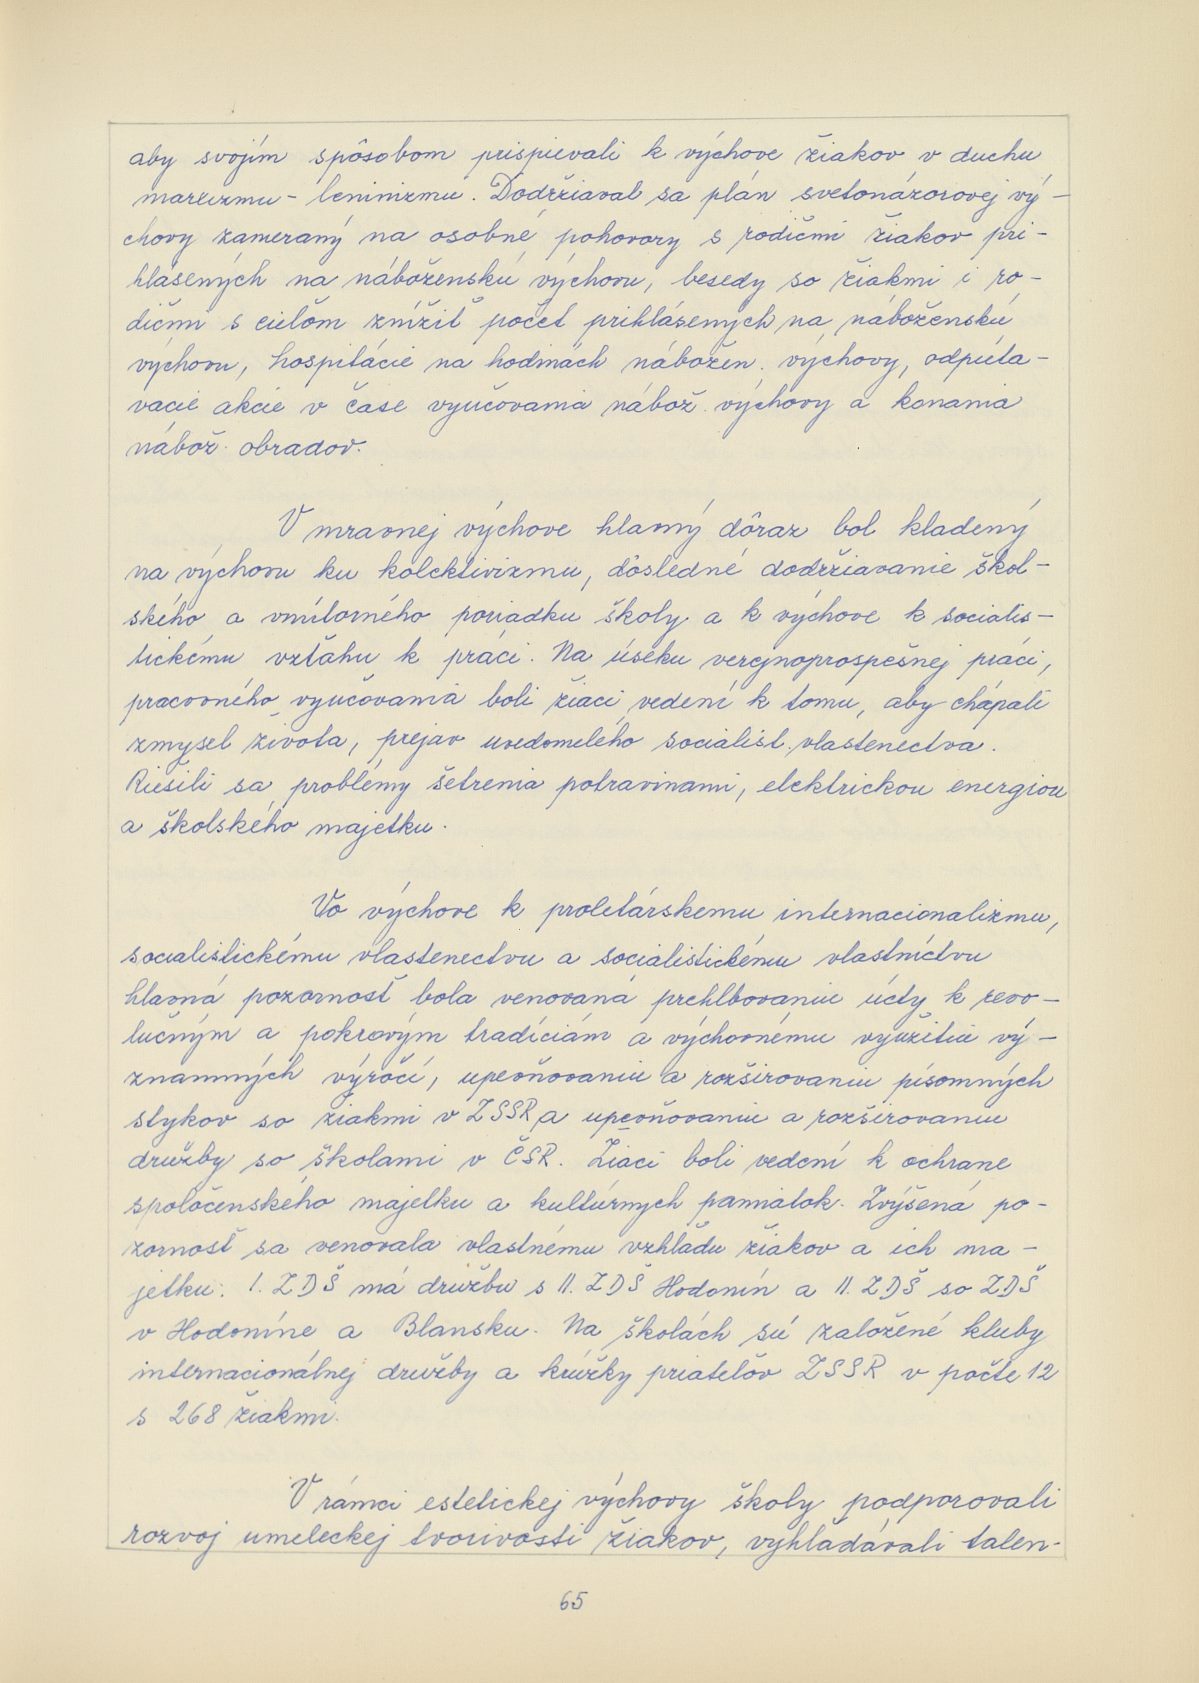 aby svojím spôsobom prispievali k výchove žiakov v duchu
marxizmu - leninizmu. Dodržiaval sa plán svetonázorovej vý-
chovy zameraný na osobné pohovory s rodičmi žiakov pri-
hlásených na náboženskú výchovu, besedy so žiakmi i ro-
dičmi s cieľom znížiť počet prihlásených na náboženskú
výchovu, hospitácie na hodinách nábožen. výchovy, odpúta-
vacie akcie v čase vyučovania nábož. výchovy a konania
nábož. obradov.
V mravnej výchove hlavný dôraz bol kladený
na výchovu ku kolektivizmu, dôsledné dodržiavanie škol-
ského a vnútorného poriadku školy a k výchove k socialis-
tickému vzťahu k práci. Na úseku verejnoprospešnej práci,
pracovného vyučovania boli žiaci vedení k tomu, aby chápali
zmysel života, prejav uvedomelého socialist. vlastenectva.
Riešili sa problémy šetrenia potravinami, elektrickou energiou
a školského majetku.
Vo výchove k proletárskemu internacionalizmu,
socialistickému vlastenectvu a socialistickému vlastníctvu
hlavná pozornosť bola venovaná prehlbovaniu úcty k revo-
lučným a pokrovým tradíciám a výchovnému využitia vý-
znamných výročí, upevňovaniu a rozširovaniu písomných
stykov so žiakmi v ZSSR a upevňovaniu a rozširovaniu
družby so školami v ČSR. Žiaci boli vedení k ochrane
spoločenského majetku a kultúrnych pamiatok. Zvýšená po-
zornosť sa venovala vlastnému vzhľadu žiakov a ich ma-
jetku. I. ZDŠ má družbu s II. ZDŠ Hodonín a II. ZDŠ so ZDŠ
v Hodoníne a Blansku. Na školách sú založené kluby
internacionálnej družby a krúžky priateľov ZSSR v počte 12
s 268 žiakmi.
V rámci estetickej výchovy školy podporovali
rozvoj umeleckej tvorivosti žiakov, vyhľadávali talen-
65